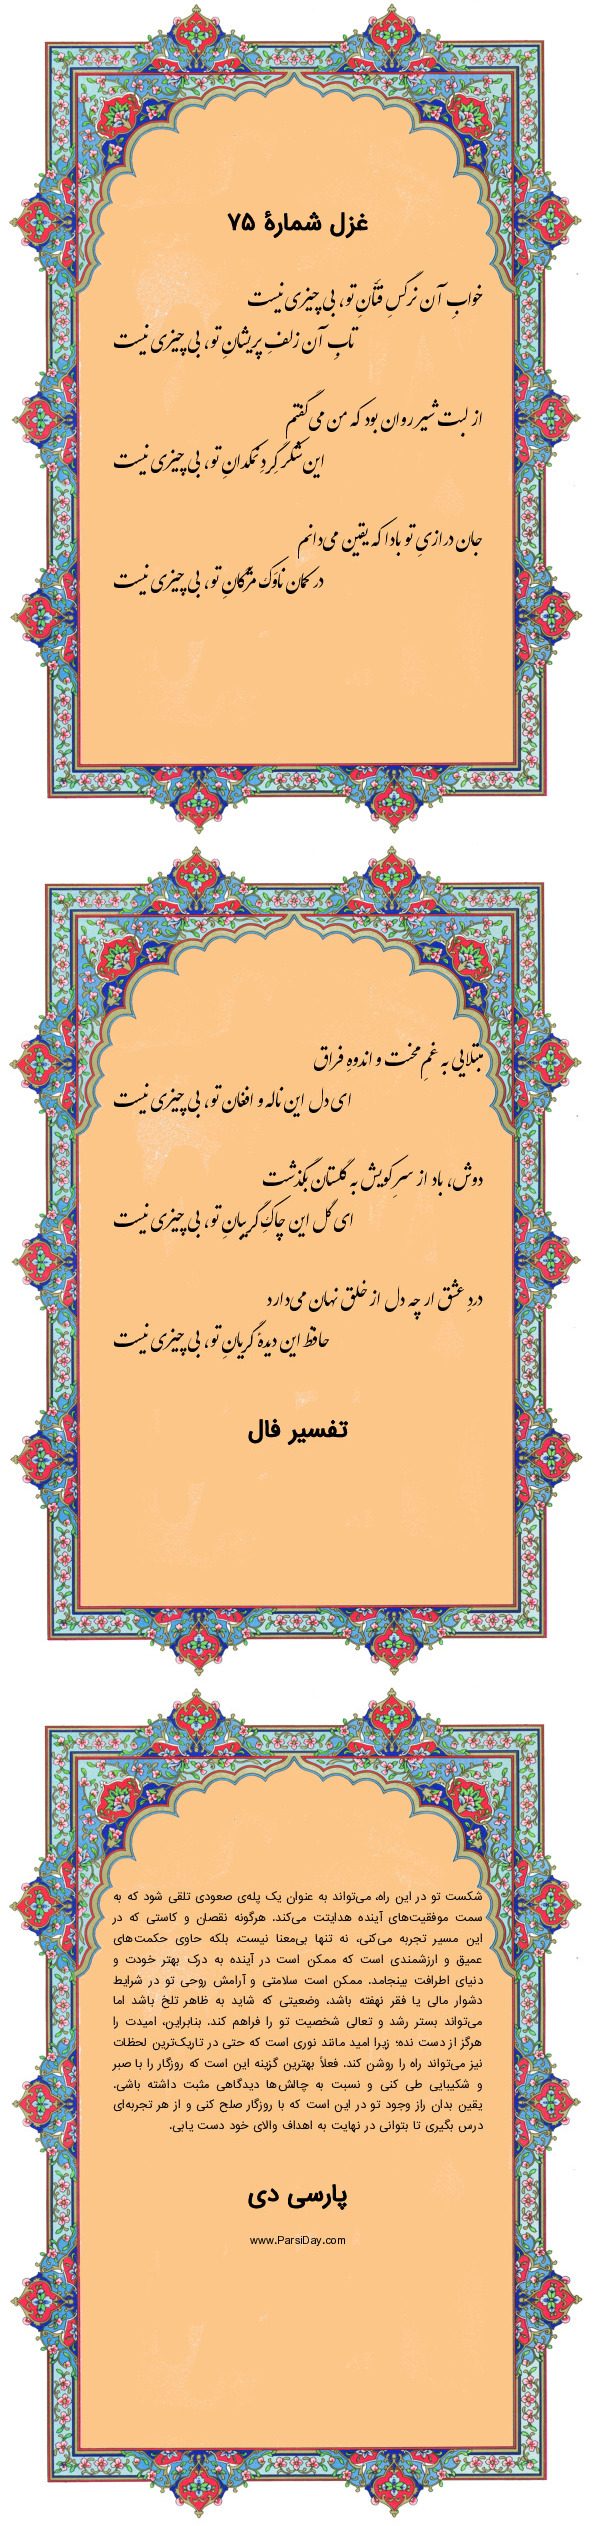 غزل شمارهٔ ۷۵
خوابِ آن نرگسِ فتّانِ تو، بی چیزی نیست
تابِ آن زلفِ پریشانِ تو، بی چیزی نیست
از لبت شیر روان بود که من می‌گفتم
این شکر گِردِ نمکدانِ تو، بی چیزی نیست
جان درازیِ تو بادا که یقین می‌دانم
در کمان ناوَک مژگانِ تو، بی چیزی نیست
مبتلایی به غمِ محنت و اندوهِ فراق
ای دل این ناله و افغان تو، بی چیزی نیست
دوش، باد از سرِ کویش به گلستان بگذشت
ای گل این چاکِ گریبانِ تو، بی چیزی نیست
دردِ عشق ار چه دل از خلق نهان می‌دارد
حافظ این دیدهٔ گریانِ تو، بی چیزی نیست
تفسیر فال
شکست تو در این راه، می‌تواند به عنوان یک پله‌ی صعودی تلقی شود که به
سمت موفقیت‌های آینده هدایتت می‌کند. هرگونه نقصان و کاستی که در
این مسیر تجربه می‌کنی، نه تنها بی‌معنا نیست، بلکه حاوی حکمت‌های
عمیق و ارزشمندی است که ممکن است در آینده به درک بهتر خودت و
دنیای اطرافت بینجامد. ممکن است سلامتی و آرامش روحی تو در شرایط
دشوار مالی یا فقر نهفته باشد، وضعیتی که شاید به ظاهر تلخ باشد اما
می‌تواند بستر رشد و تعالی شخصیت تو را فراهم کند. بنابراین، امیدت را
هرگز از دست نده؛ زیرا امید مانند نوری است که حتی در تاریک‌ترین لحظات
نیز می‌تواند راه را روشن کند. فعلاً بهترین گزینه این است که روزگار را با صبر
و شکیبایی طی کنی و نسبت به چالش‌ها دیدگاهی مثبت داشته باشی.
یقین بدان راز وجود تو در این است که با روزگار صلح کنی و از هر تجربه‌ای
درس بگیری تا بتوانی در نهایت به اهداف والای خود دست یابی.
پارسی دی
www.ParsiDay.com